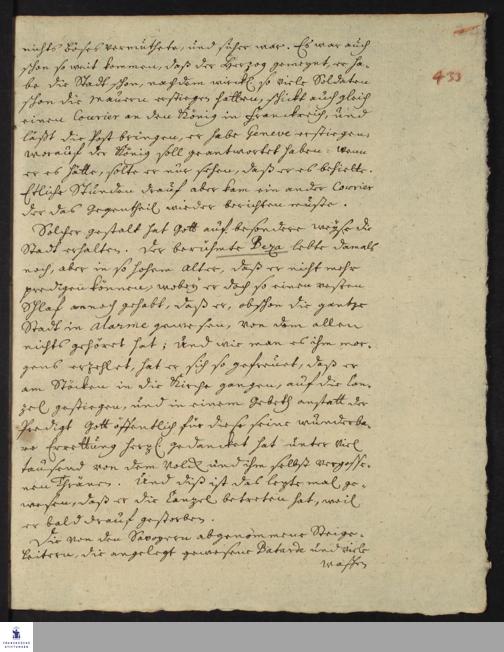 433
nichts böses vermuthete, und sicher war. Es war auch
schon so weit kommen, daß der Herzog gemeynt, er ha-
be die Stadt schon, nachdem würckl. so viele Soldaten
schon die Mauern erstiegen hatten, schickt auch gleich
einen Courier an den König in Franckreich, und
läßt die Post bringen, er habe Geneve erstiegen,
worauf der König soll geantwortet haben: wenn
er es hätte, solte er nur sehen, daß er es behielte.
Etliche Stunden drauf aber kam ein ander Courier
der das Gegentheil wieder berichten muste.
Solcher gestalt hat Gott auf besondere weyse die
Stadt erhalten. Der berühmte Beza lebte damals
noch, aber in so hohem Alter, daß er nicht mehr
predigen können, wobey er doch so einen vesten
Schlaf annoch gehabt, daß er, obschon die gantze
Stadt in Alarme gewesen, von dem allen
nichts gehöret hat; Und wie man es ihm mor-
gens erzehlet, hat er sich so gefreuet, daß er
am Stöcken in die Kirche gangen, auf die Can-
zel gestiegen, und in einem Gebeth anstatt der
Predigt Gott öffentlich für diese seine wunderba-
re Errettung herzl. gedancket hat unter viel
tausend von dem Volck und ihm selbst vergosse-
nen Thränen. Und diß ist das letzte mal ge-
wesen, daß er die Canzel betreten hat, weil
er bald drauf gestorben.
Die von den Savoyern abgenommene Steige-
Leitern, die angelegt gewesene Petarde und viele
waffen
FRANCKESCHE
STIFTUNGEN